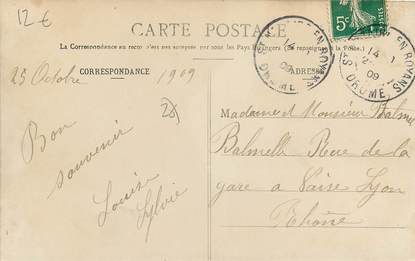 12 €
CARTE POSTALE
La Correspondance au recto n'est pas acceptée par tous les Pays Étrangers (Se renseigner à la Poste.)
CORRESPONDANCE
ADRESSE
5c
EN ROYANS
14
09
DROME
EN ROYANS
14
09
DROME
25 Octobre 1909
Bon
souvenir
Louise
Sylvie
Madame et Monsieur Balmel
Balmelle Rue de la
gare a Vaise Lyon
Rhône